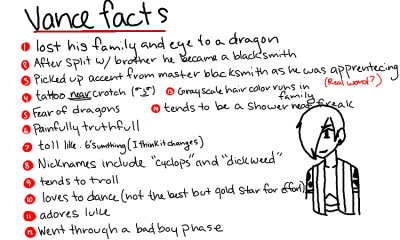 Vance facts
1 lost his family and eye to a dragon
2 After split w/ brother he became a blacksmith
3 Picked up accent from master blacksmith as he was apprentecing
(Real word?)
4 tattoo near crotch
13 Grayscale hair color runs in family
5 Fear of dragons
14 tends to be a shower neat freak
6 Painfully truthfull
7 toll like.. 6'sumthing (I think it changes)
8 Nicknames include "cyclops" and "dickweed"
9 tends to troll
10 loves to dance (not the best but gold star for effort)
11 adores luke
12 Went through a bad boy phase